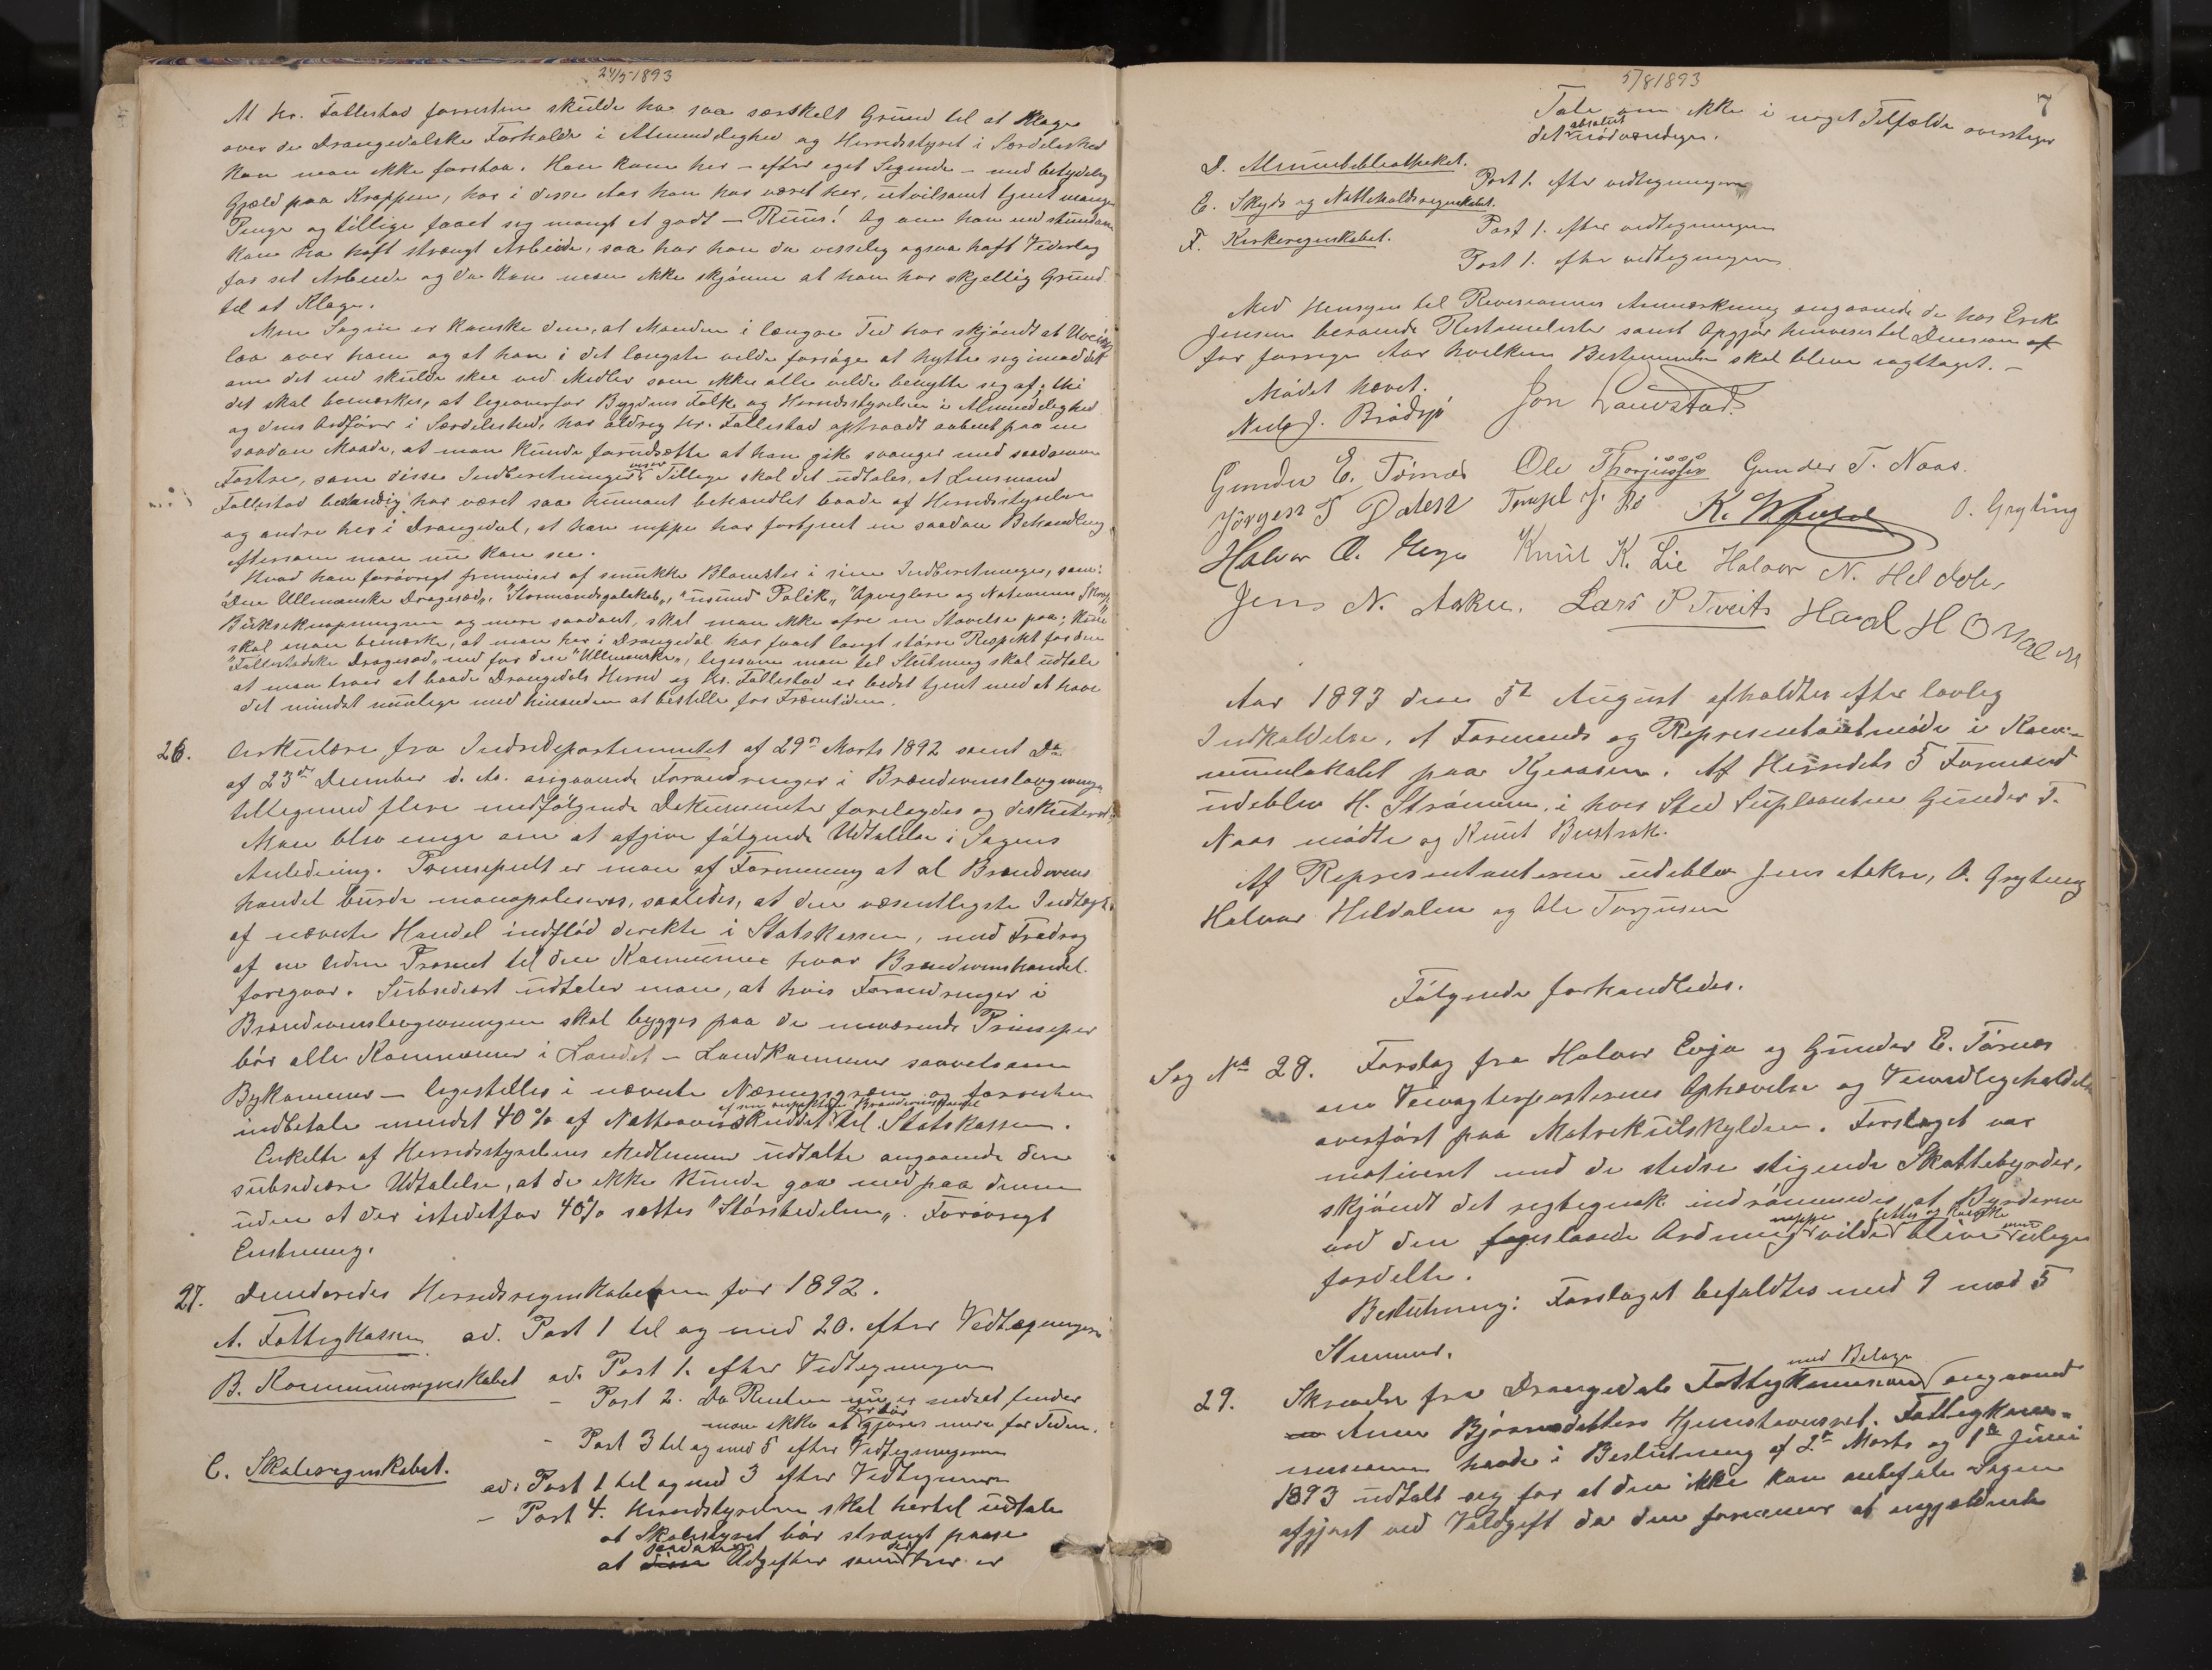 24/5 1893
At Hr. Fallestad forresten skulde ha saa særskelt Grund til at klage
over de Drangedalske Forholde i Almindelighed og Herredsstyret i Særdeleshed
kan man ikke forstaa. Han kom her – efter eget Sigende – med betydelig
Gjæld paa Kroppen, har i disse Aar han har været her, utvilsomt tjent mange
Penge og tillige faaet seg mangt et godt – Ruus! Og om han end stundom
kan ha haft strængt Arbeide, saa har han da visselig ogsaa haft Vederlag
for sit Arbeide og da kan man ikke skjønne at han har skjellig Grund
til at klage.
Men Sagen er kanske den, at Manden i længere Tid har skjøndt at Uveiret
laa over ham og at han i det længste vilde forsøge at hytte seg imod det
om det end skulde skee ved Midler som ikke alle vilde benytte seg af; thi
det skal bemærkes, at ligeoverfor Bygdens Folk og Herredsstyrelsen i Almindelighed
og dens Ordfører i Særdeleshed, har aldrig Hr. Fallestad optraadt aabent paa en
saadan Maade, at man kunde forudsætte at han gik svanger med saadanne
Fostre, som disse Indberetninger viser. Tillige skal det udtales, at Lensmand
Fallestad bestandig har været saa humant behandlet baade af Herredsstyrelsen
og andre her i Drangedal, at han neppe har fortjent en saadan Behandling
eftersom man nu kan see.
Hvad han forøvrigt fremviser af smukke Blomster i sine Indberetninger, som:
"Den Ullmanske Dragesæd", "Stormandsgalskab", "usund Politik", "Opviglere og Nationens
Bukseknapningen og mere saadant, skal man ikke ofre en Stavelse paa; kun
skal man bemærke, at man her i Drangedal har faaet langt større Respekt for den
"Fallestadske Dragesæd" end for den "Ullmanske", ligesom man til Slutning skal udtale
at man troer at baade Drangedals Herred og Hr. Fallestad er bedst tjent med at have
det mindst mulige med hinanden at bestille for Fremtiden.
26. Cirkulære fra Indredepartementet af 29de Marts 1892 samt Do
af 23de December s. A. angaaende Forandringer i Brændevinslovgivningen
tilligemed flere medfølgende Dokumenter forelagdes og diskuteredes.
Man blev enige om at afgive følgende Udtalelse i Sagens
Anledning. Principielt er man af Formening at al Brændevins
handel burde monopoliseres, saaledes, at den væsentligste Indtægt
af nævnte Handel indflød direkte i Statskassen, med Fradrag
af en liden Procent til den Kommune hvor Brændevinshandel
foregaar. Subsidiært udtaler man, at hvis Forandringer i
Brændevinslovgivningen skal bygges paa de nuværende Principer
bør alle Kommuner i Landet – Landkommuner saavelsom
Bykommuner – ligestilles i nævnte Næringsgren og forresten
indbetale mindst 40% af Nettooverskuddet til Statskassen.
Enkelte af Herredsstyrelsens Medlemmer udtalte angaaende den
subsidiære Udtalelse, at de ikke kunde gaa med paa denne
uden at der istedetfor 40% sættes "Størstedelen". Forøvrigt
Enstemmig.
27. Decideredes Herredsregnskaberne for 1892.
A. Fattigkassen ad. Post 1 til og med 20. efter Vedtegningerne
B. Kommuneregnskabet ad. Post 1. efter Vedtegningen
– Post 2. Da Renten nu er nedsat finder
man ikke at der bør gjøres mere for Tiden.
– Post 3 til og med 5 efter Vedtegningerne
C. Skoleregnskabet.
ad. Post 1 til og med 3 efter Vedtegningerne
– Post 4. Herredsstyrelsen skal hertil udtale
at Skolestyret bør strængt passe
at saadanne Udgifter som der er
5/8 1893
7
Tale om ikke i noget Tilfælde overstiger
det absolut nødvændige.
D. Almuebibliotheket.
Post 1. efter vedtegningerne
E. Skyds og Natteholdsregnskabet.
Post 1. efter vedtegningen
F. Kirkeregnskabet.
Post 1. efter vedtegningen
Med Hensyn til Revisionens Anmærkning angaaende de hos Erik
Jensen beroende Restancelister samt Opgjør henvises til Decision af
for forrige Aar hvilken Bestemmelse skal blive iagttaget. –
Mødet hævet.
Niels J. Brødsjø Jon Lauvstad
Gunder E. Tørnes Ole Thorjussen Gunder T. Naas.
Jørgen T Dalen Tengel J. Bø K. O. Gryting
Halvor O. Knut K. Lie Halvor N. Heldalen
Jens N. Aakre. Lars P Tveit Haral H
Aar 1893 den 5te August afholdtes efter lovlig
Indkaldelse, et Formands og Representantmøde i Kom-
munelokalet paa Kjeaasen. Af Herredets 5 Formænd
udeblev H. Strømme, i hvis Sted Suppleanten Gunder T.
Naas mødte og Knut Bustrak.
Af Representanterne udeblev Jens Aakre, O. Gryting
Halvor Heldalen og Ole Torjusen
Følgende forhandledes.
Sag No 28. Forslag fra Halvor Evju og Gunder E. Tørnes
om Veivogterposternes Ophævelse og Veivedligeholdelsen
overført paa Matrikulskylden. Forslaget var
motiveret med de stedse stigende Skattebyrder,
skjøndt det rigtignok indrømmedes, at Byrderne
ved den foreslaaede Ordning neppe vilde blive lettere og kanske mere ulige
fordelte.
Beslutning: Forslaget befaldtes med 9 mod 5
Stemmer.
29. Skrivelse fra Drangedals Fattigkommission med Bilage angaaende
Anne Bjørnsdatters Hjemstavnsret. Fattigkom-
missionen havde i Beslutning af 2den Marts og 1ste Juni
1893 udtalt sig for at den ikke kan anbefale Sagen
afgjort ved Voldgift da den formener at